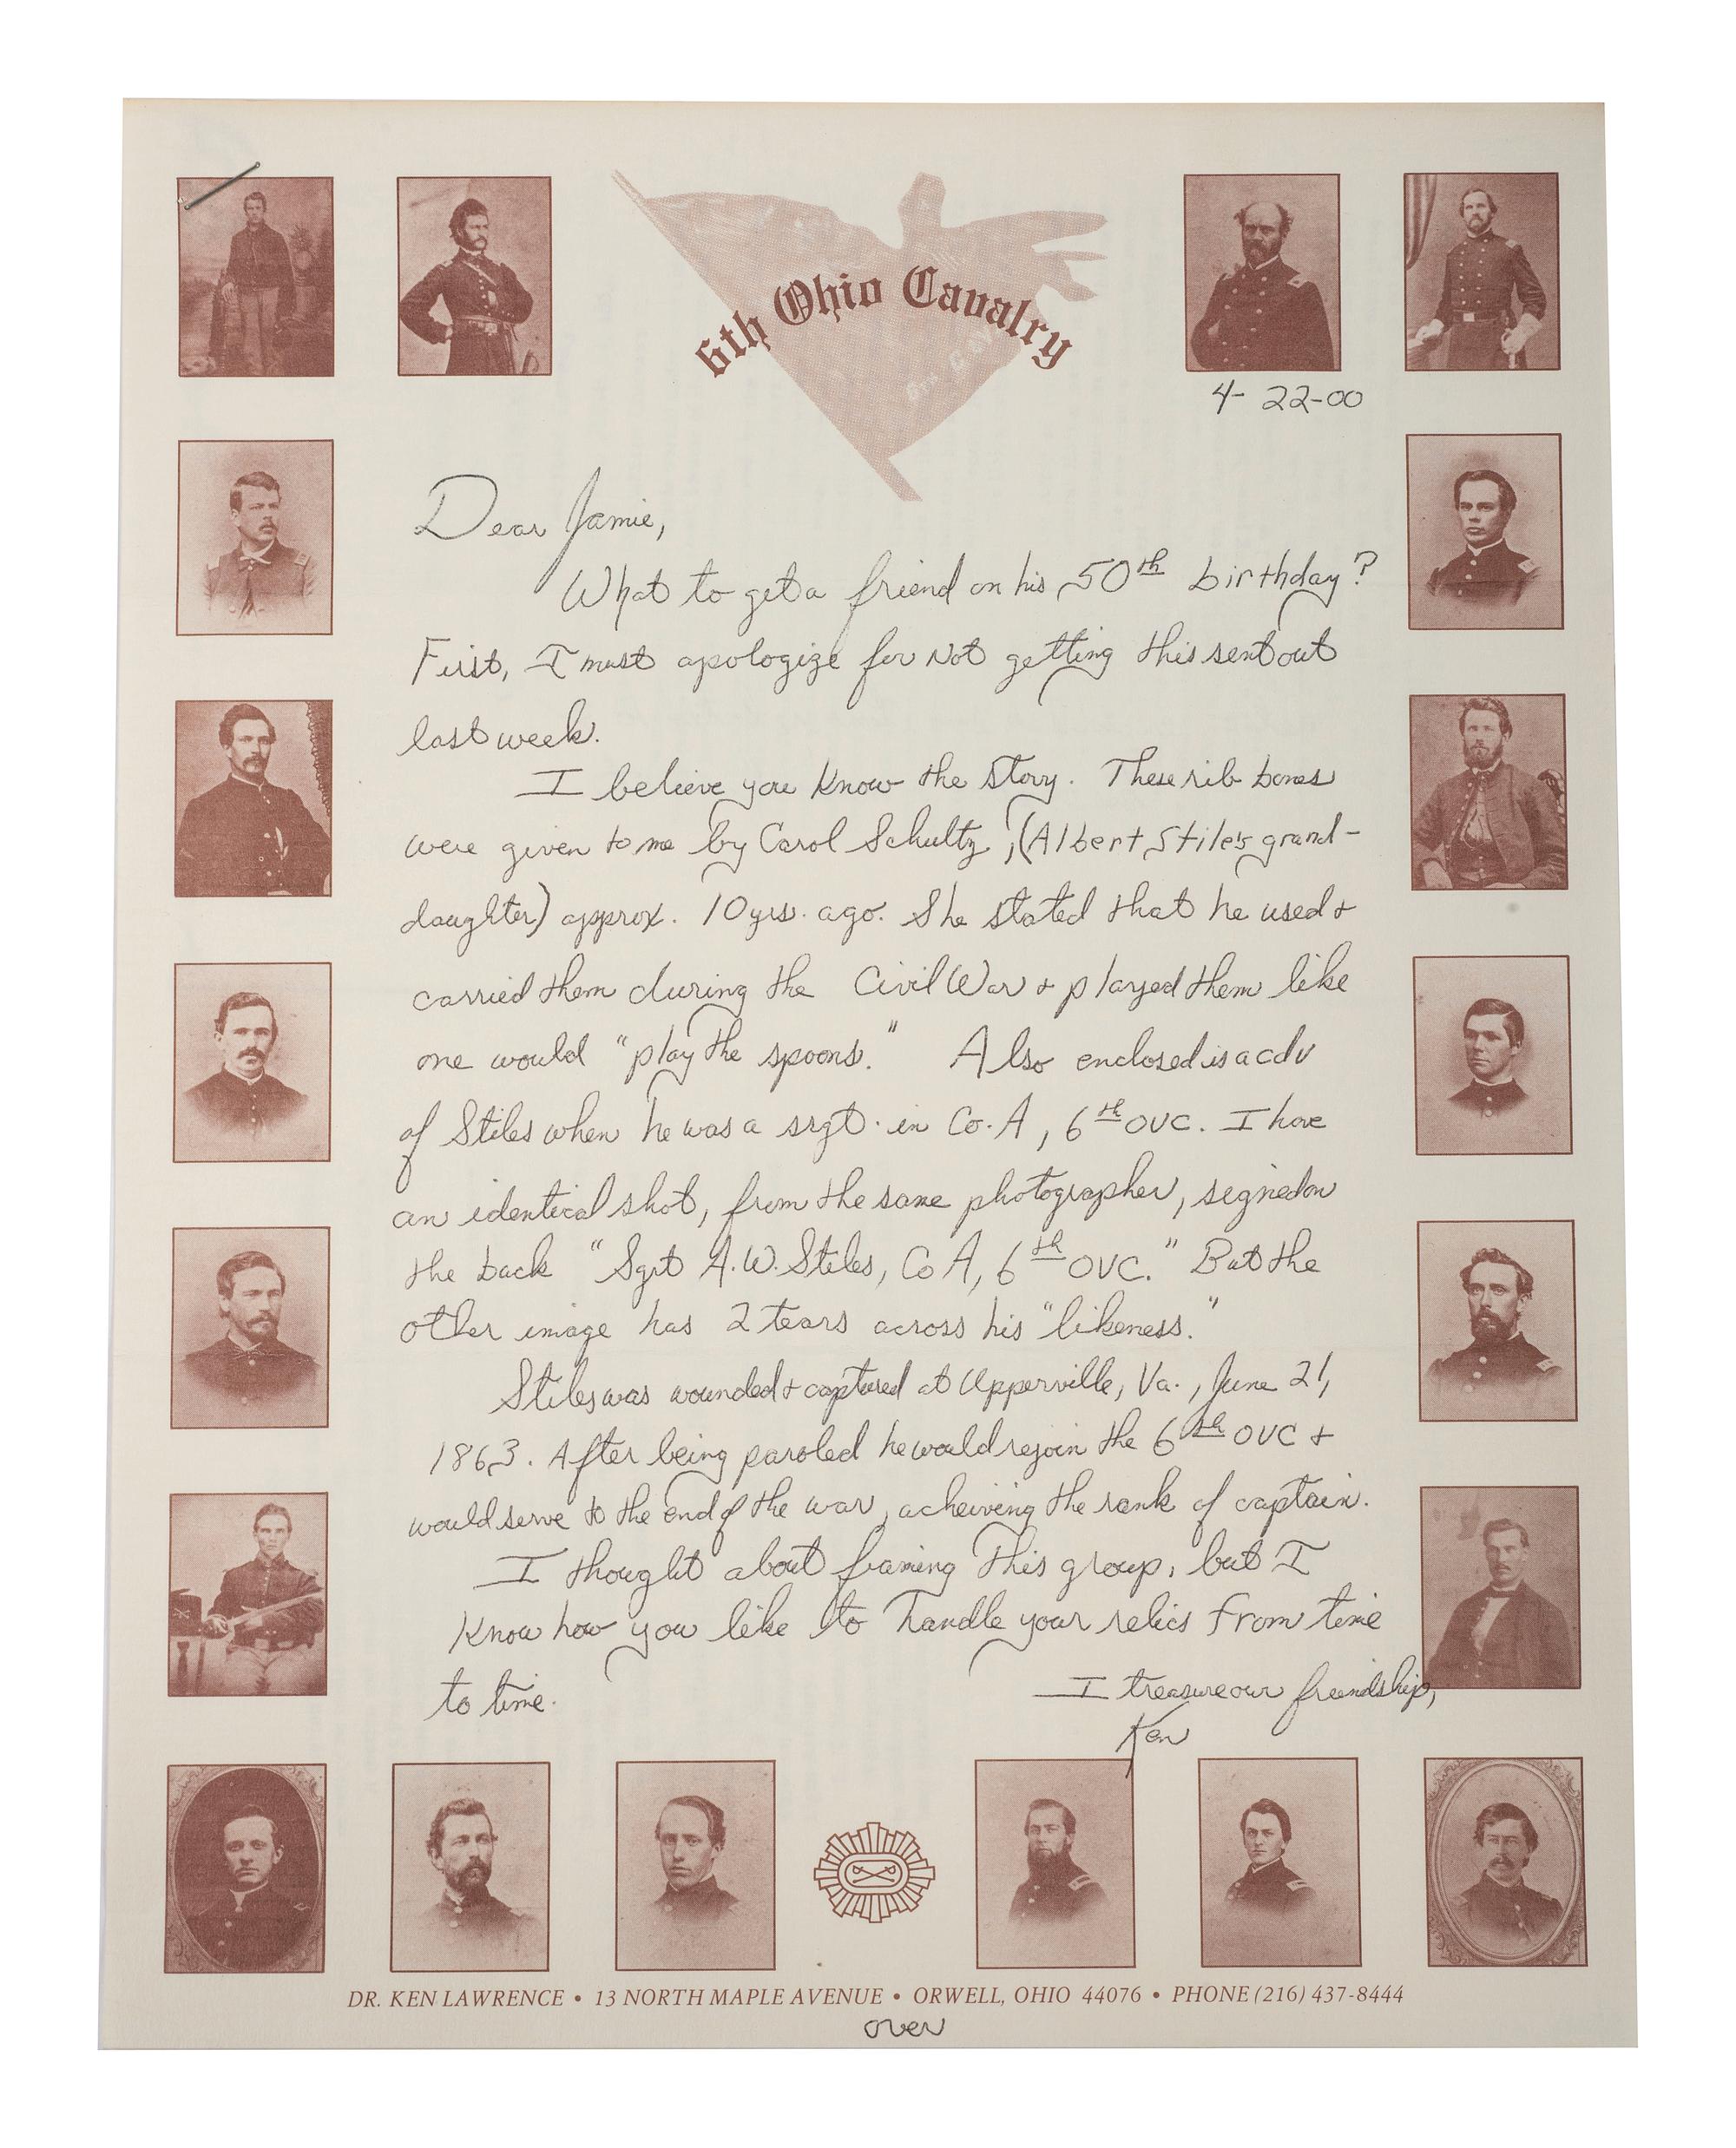 6th Ohio Cavalry
4-22-00
Dear Jamie,
What to get a friend on his 50th birthday?
First, I must apologize for not getting this sent out
last week.
I believe you know the story. These rib bones
were given to me by Carol Schultz, (Albert Stiles grand-
daughter) approx. 10 yrs. ago. She stated that he used +
carried them during the Civil War + played them like
one would "play the spoons." Also enclosed is a cdv
of Stiles when he was a srgt. in Co. A, 6th OVC. I have
an identical shot, from the same photographer, signed on
the back "Sgrt A.W. Stiles, Co A, 6th OVC." But the
other image has 2 tears across his "likeness."
Stiles was wounded + captured at Upperville, Va., June 21,
1863. After being paroled he would rejoin the 6th OVC +
would serve to the end of the war, acheiving the rank of captain.
I thought about framing this group, but I
know how you like to handle your relics from time
to time.
I treasure our friendship,
Ken
DR. KEN LAWRENCE • 13 NORTH MAPLE AVENUE • ORWELL, OHIO 44076 • PHONE (216) 437-8444
over